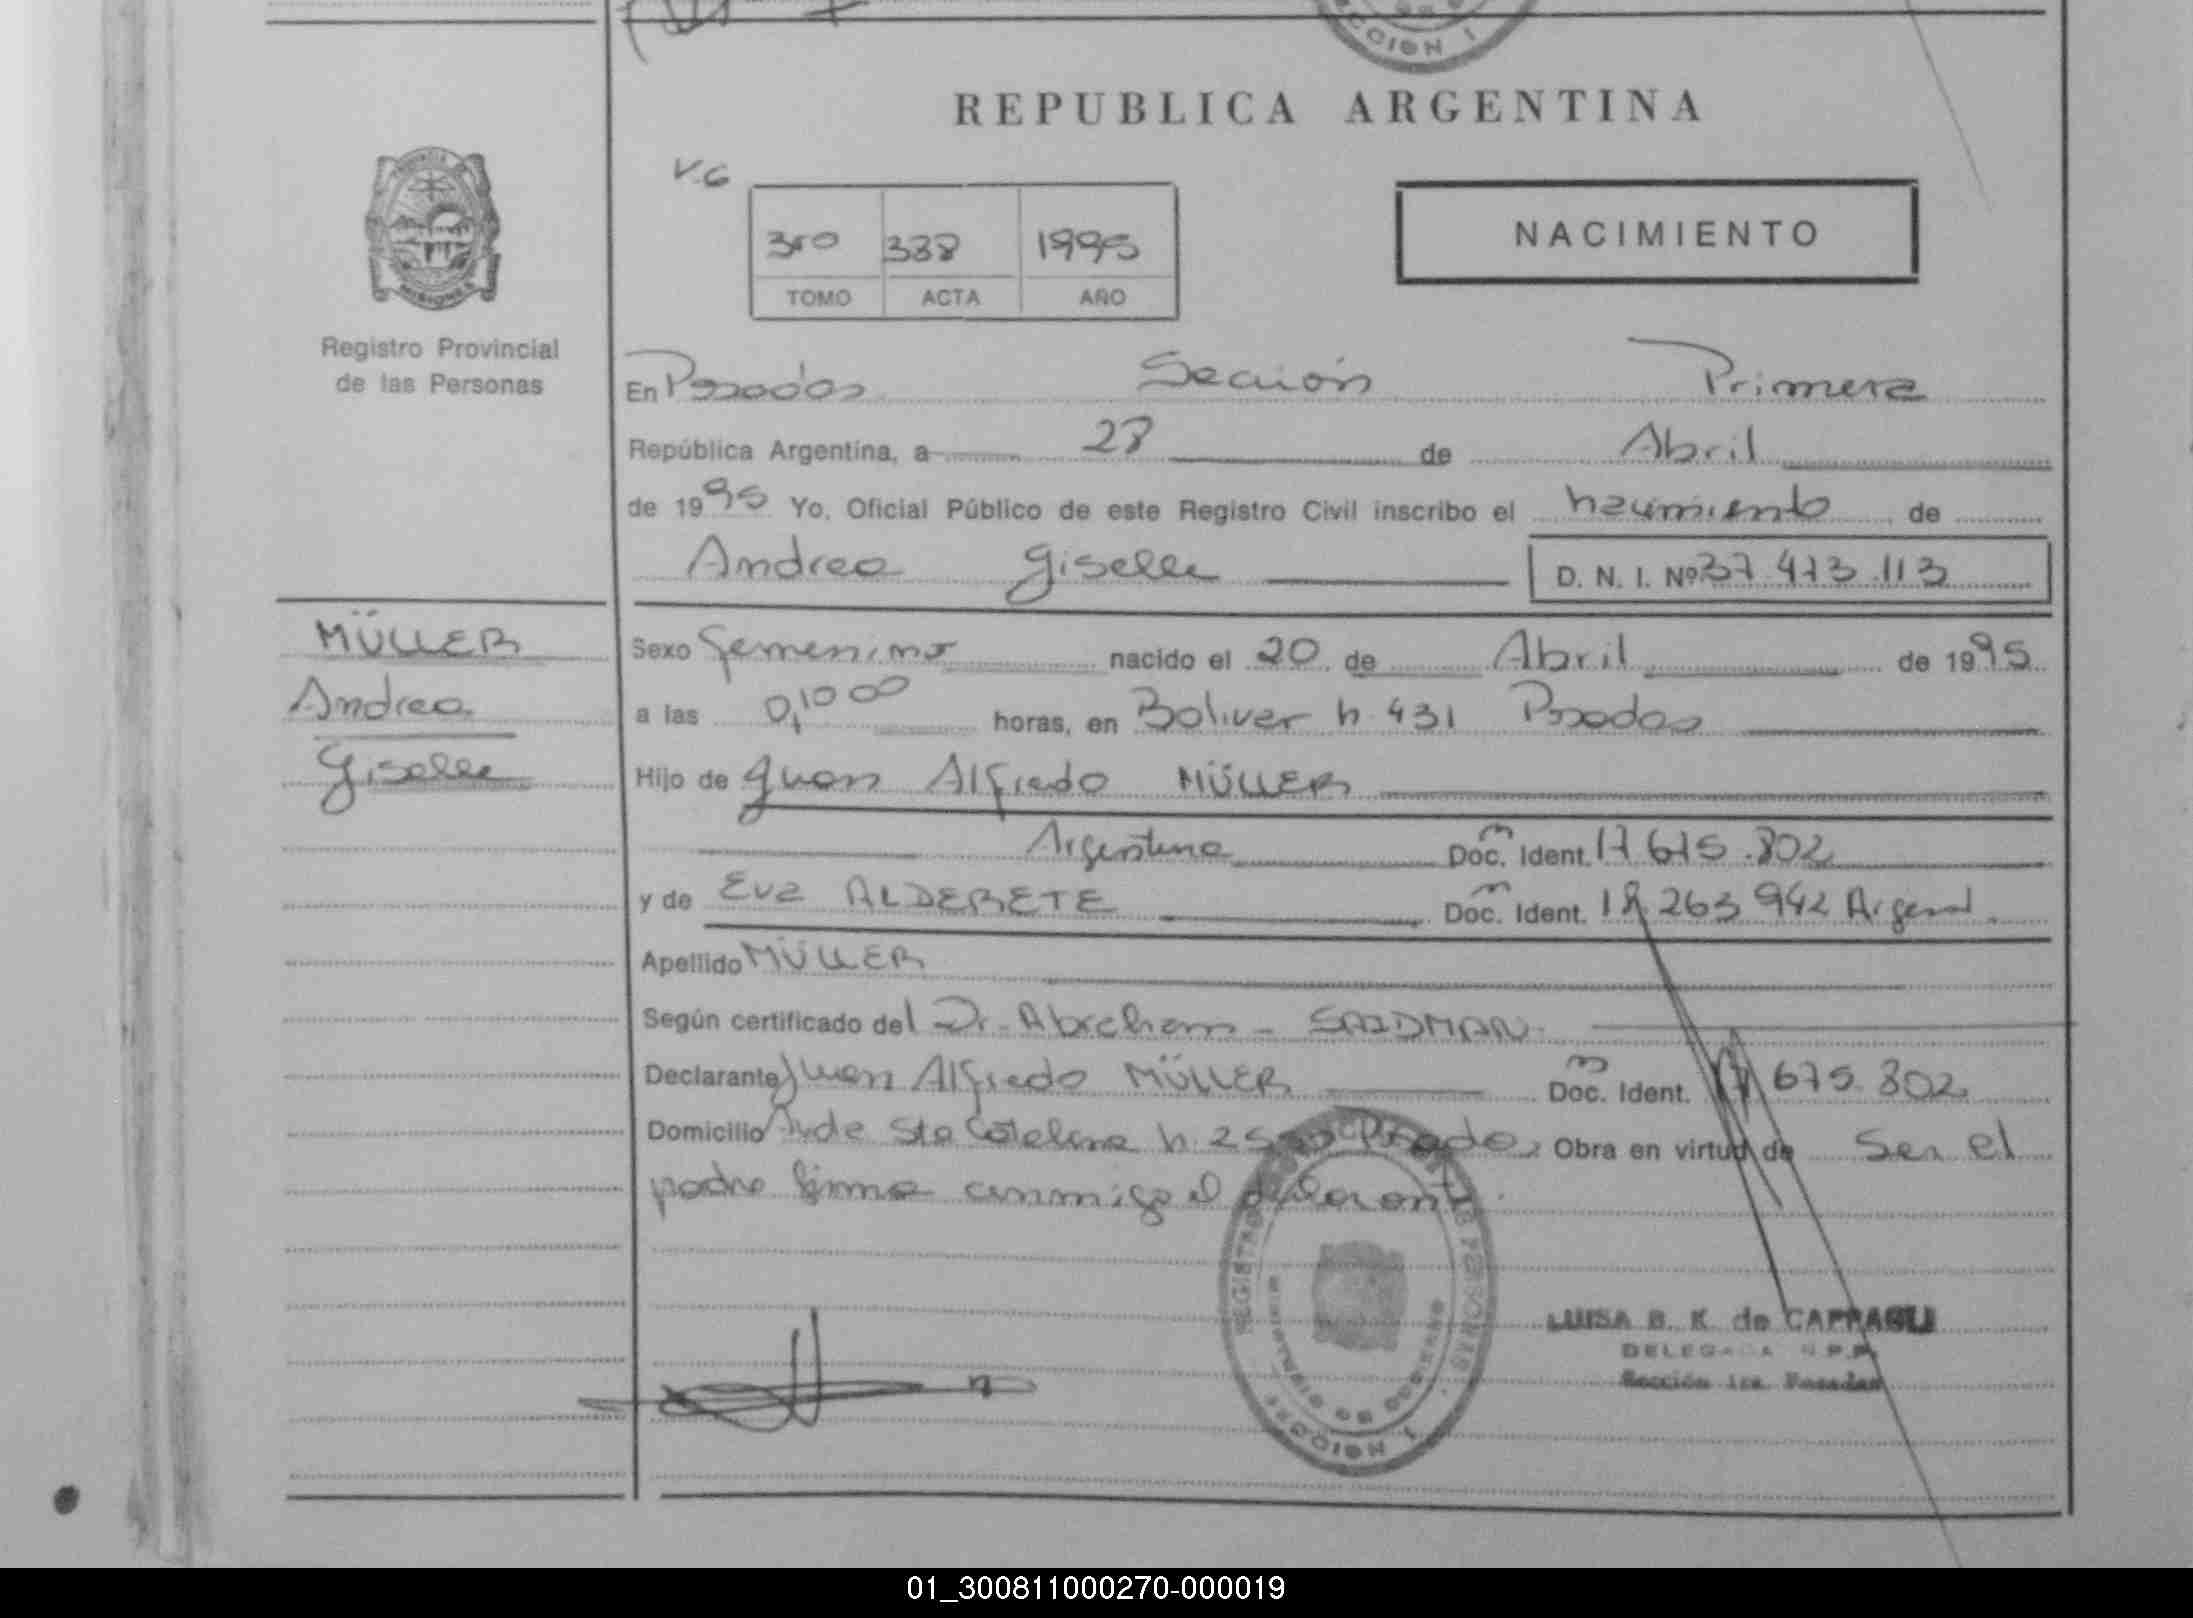 CCION 1
REPUBLICA ARGENTINA
PROVINCIA
MISIONES
Registro Provincial
de las Personas
V.G
3ro 338 1995
TOMO ACTA AÑO
NACIMIENTO
En Posadas Sección Primera
República Argentina, a 28 de Abril
de 1995 Yo, Oficial Público de este Registro Civil inscribo el nacimiento de
Andrea Giselle D. N. I. Nº 37.473.113
MÜLLER
Andrea
Giselle
Sexo femenino nacido el 20 de Abril de 1995
a las 0,10 00 horas, en Bolivar n. 431 Posadas
Hijo de Juan Alfredo MÜLLER
Argentina Doc. Ident. 17.675.802
y de Eva ALDERETE Doc. Ident. 18.263.942 Argent.
Apellido MÜLLER
Según certificado del Dr. Abraham - SAIDMAN.
Declarante Juan Alfredo MÜLLER Doc. Ident. 17.675.802
Domicilio Avda Sta Catalina n. Posadas Obra en virtud de Ser el
padre firma conmigo el declarante.
REGISTRO PERSONAS
MINISTERIO DE GOBIERNO
SECCION 1
LUISA B. K. de
DELEGADA R.P.P.
Sección 1ra. Posadas
01_300811000270-000019